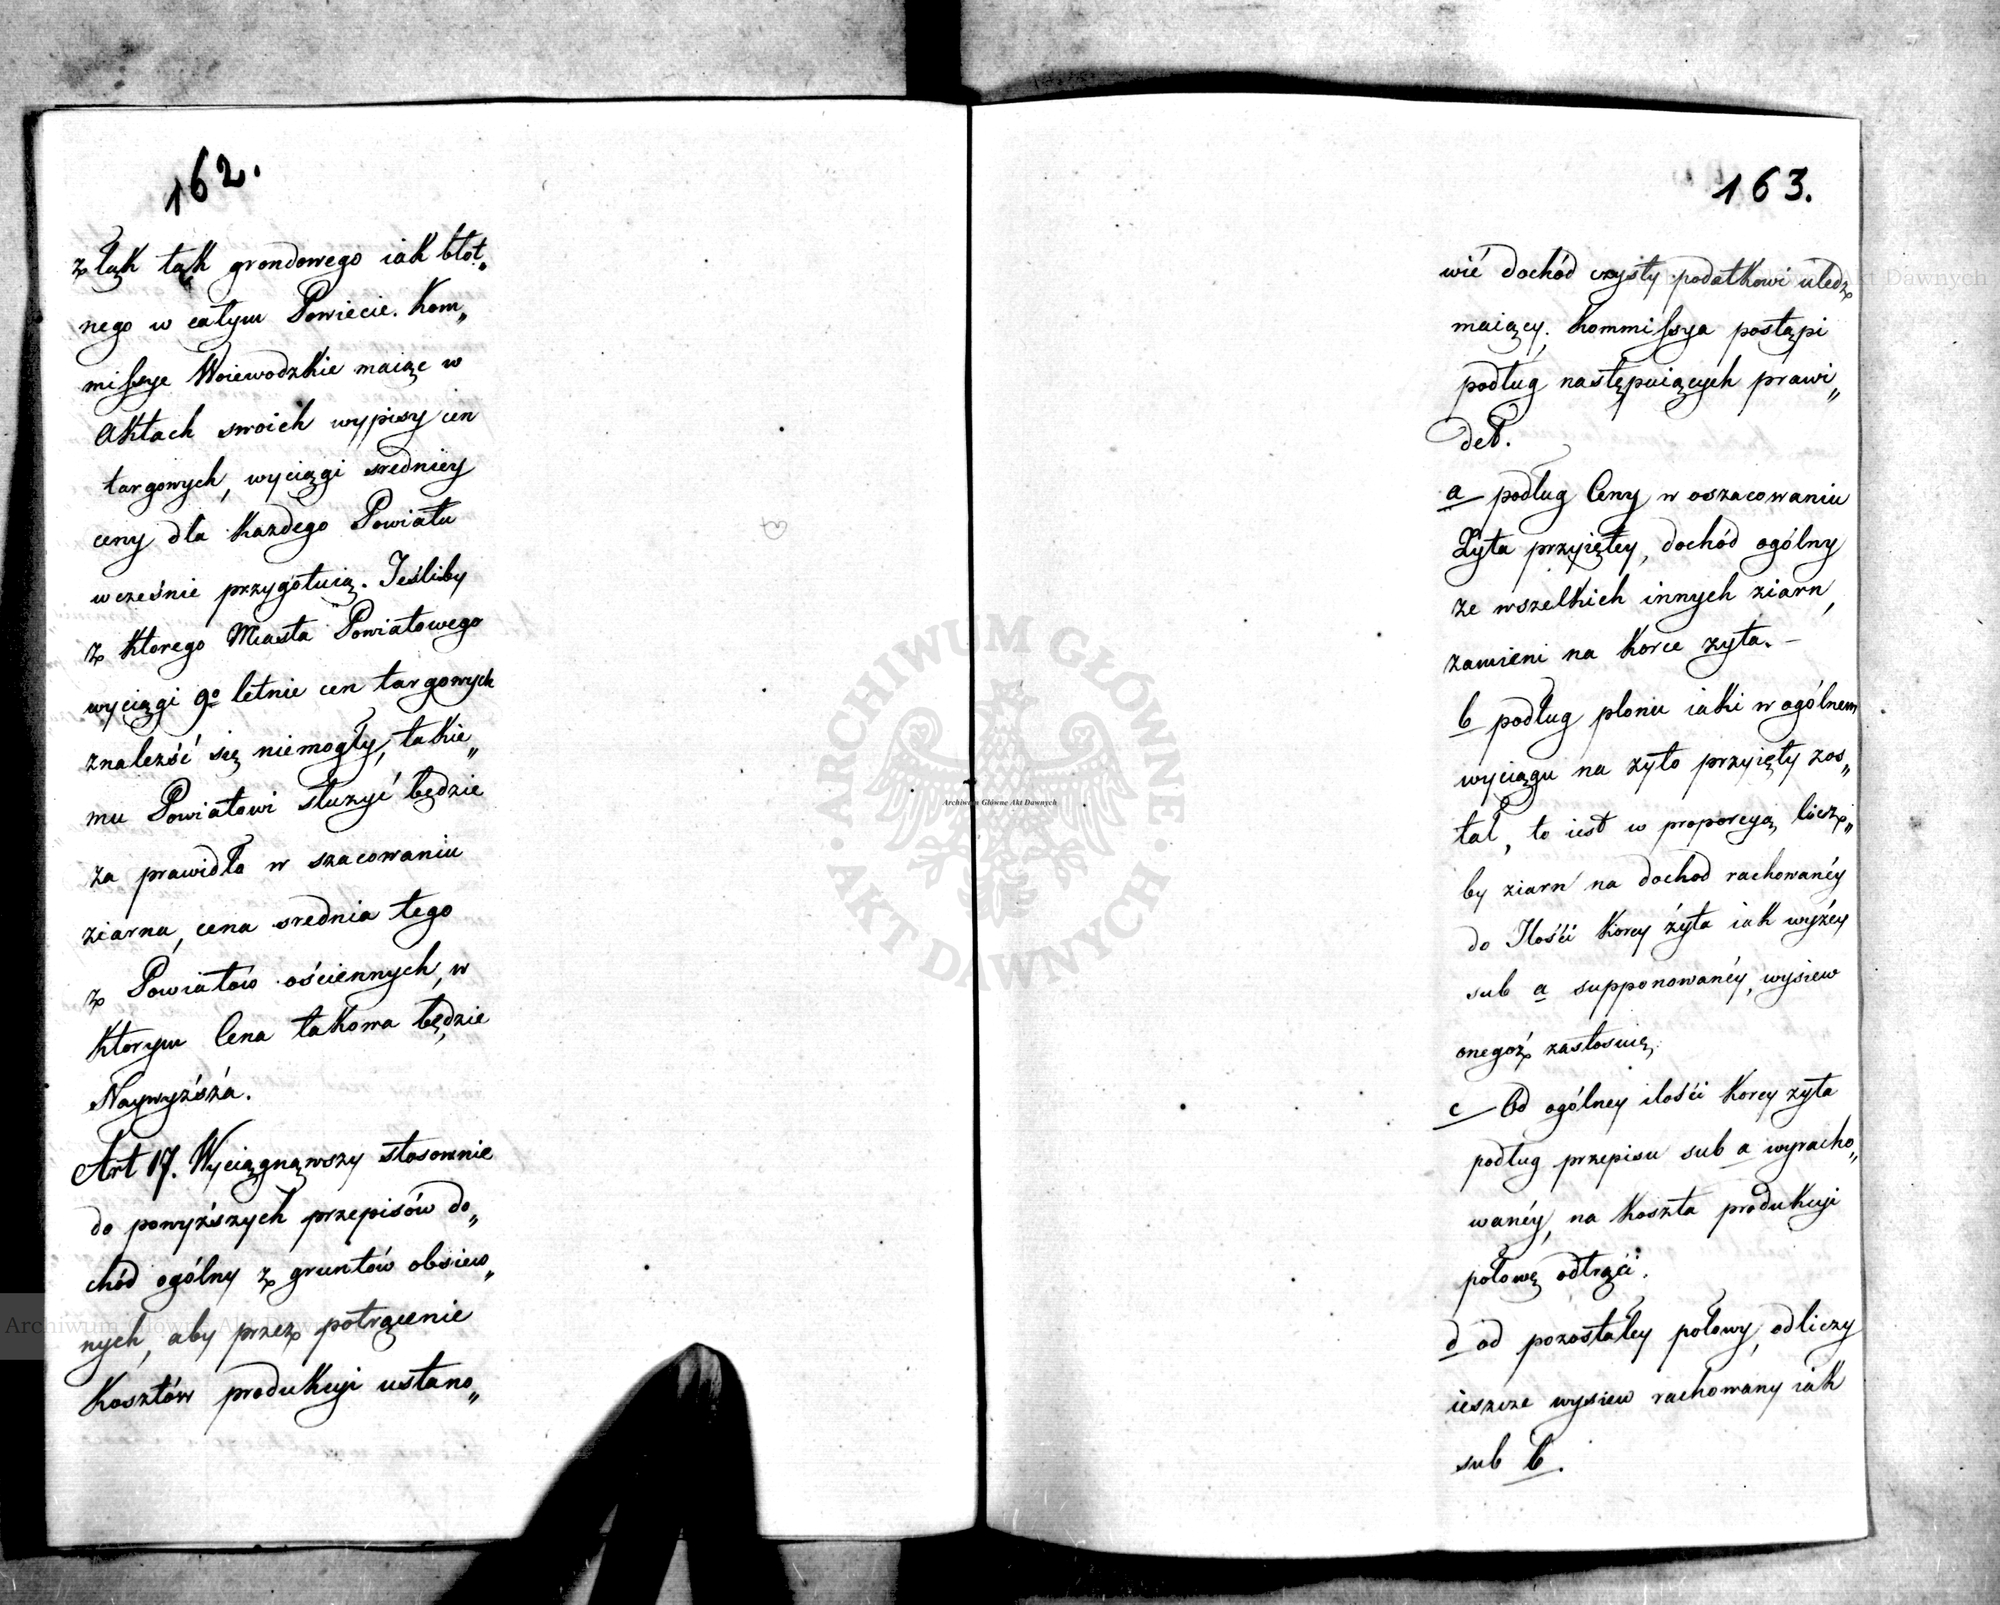 162.
z łąk tak grondowego iak błot„
nego w całym Powiecie. Kom„
missye Woiewodzkie maiąc w
Aktach swoich wypisy cen
targowych, wyciągi sredniey
ceny dla każdego Powiatu
wcześnie przygotuią. Jeśliby
z ktorego Miasta Powiatowego
wyciągi 9o letnie cen targowych
znaleźść się niemogły, takie„
mu Powiatowi służyć będzie
za prawidło w szacowaniu
ziarna, cena srednia tego
z Powiatów ościennych, w
ktorym Cena takowa będzie
Naywyższa.
Art 17. Wyciągnąwszy stosownie
do powyższych przepisów do„
chód ogólny z gruntów obsiew„
nych, aby przez potrącenie
kosztów produkcyi ustano„
163.
wić dochód czysty podatkowi uledz
maiący, Kommissya postąpi
podług następuiących prawi„
deł.
a podług Ceny w oszacowaniu
Żyta przyiętey, dochód ogólny
ze wszelkich innych ziarn,
zamieni na korce żyta. –
b podług plonu iaki w ogólnem
wyciągu na żyto przyięty zos„
tał, to iest w proporcyą licz„
by ziarn na dochod rachowanéy
do Ilości korcy żyta iak wyżey
sub a supponowanéy, wysiew
onegoż zastosuie,
c Od ogólney ilości korcy żyta
podług przepisu sub a wyracho„
wanéy, na koszta produkcyi
połowę odtrąci.
d od pozostałey połowy, odliczy
ieszcze wysiew rachowany iak
sub b.
ARCHIWUM GŁÓWNE AKT DAWNYCH
Archiwum Główne Akt Dawnych